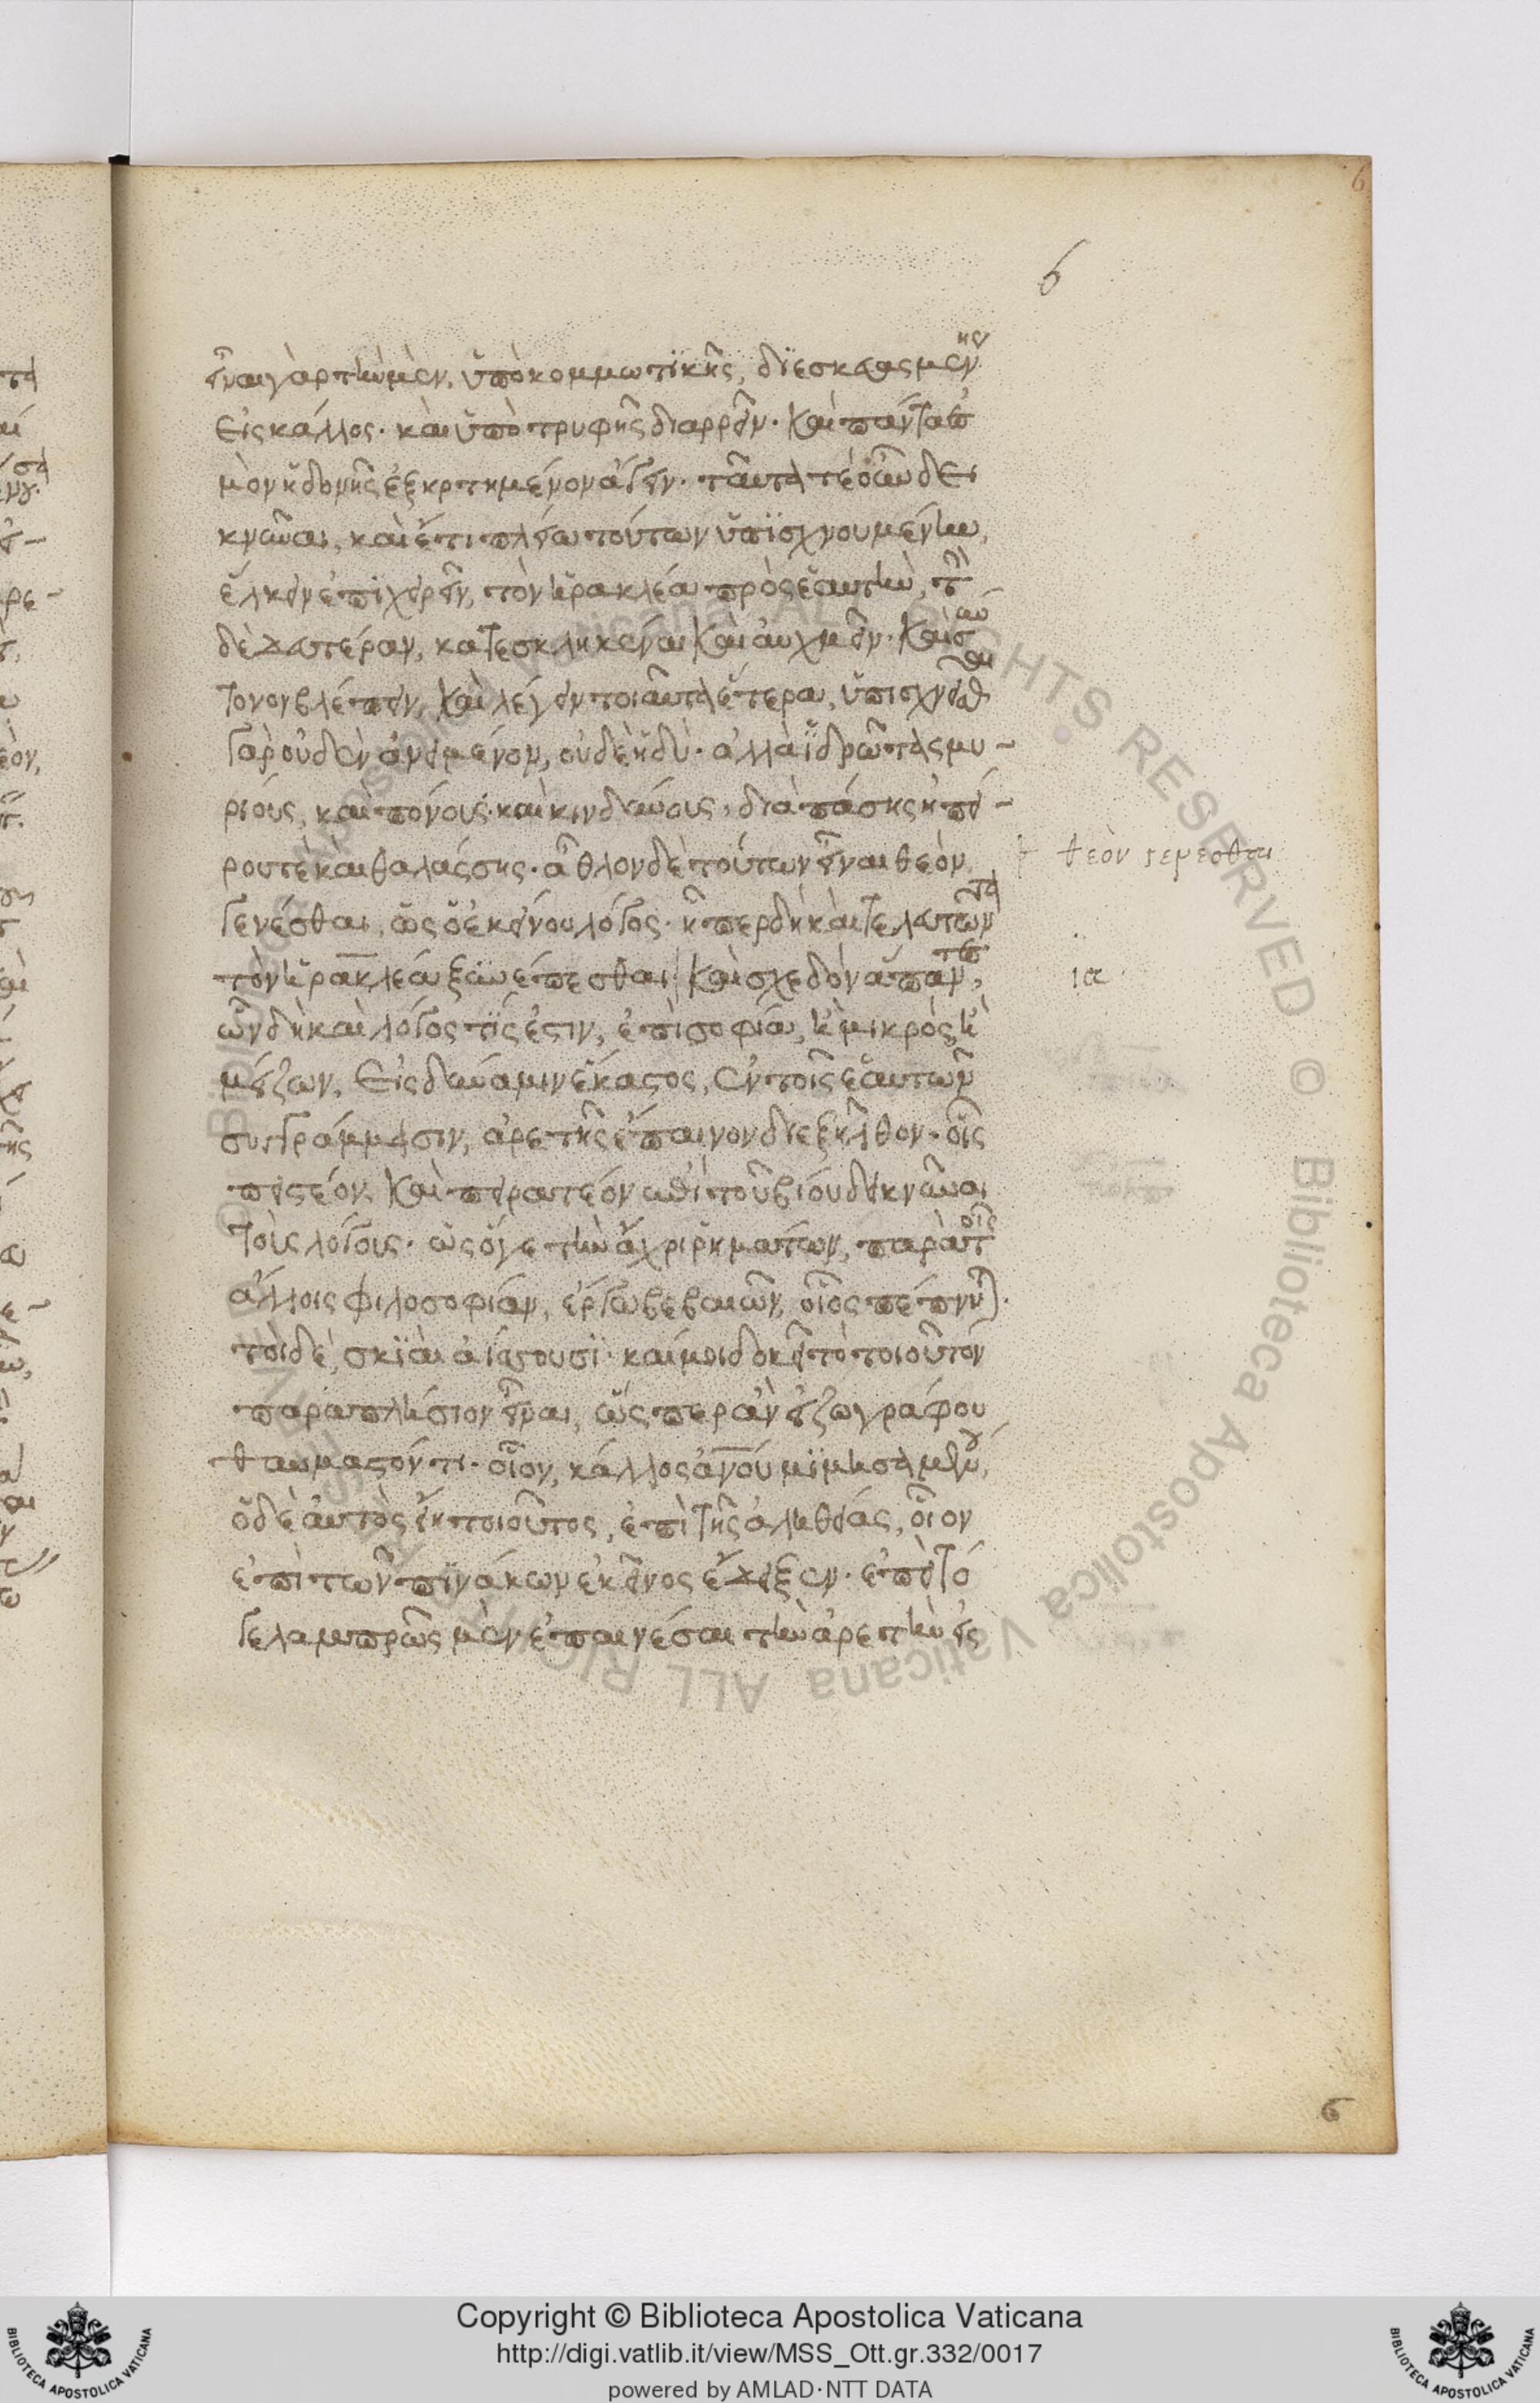 6
6
εἶναι γὰρ τὴν μὲν, ὑπὸ κομμωτικῆς, διεσκευασμένην
εἰς κάλλος. καὶ ὑπὸ τρυφῆς διαρρεῖν. καὶ πάντα ἑσ
μὸν ἡδονῆς ἐξηρτημένον ἄγειν. ταῦτά τε οὖν δει
κνῦναι, καὶ ἔτι πλείω τούτων ὑπισχνουμένην,
ἕλκειν ἐπιχειρεῖν, τὸν ἡρακλέα πρὸς ἑαυτήν, τὴν
δὲ ἑτέραν, κατεσκληκέναι καὶ αὐχμεῖν. καὶ σύν
τονον βλέπειν, καὶ λέγειν τοιαῦτα ἕτερα, ὑπισχνεῖσθαι
γὰρ οὐδὲν ἀνειμένον, οὐδὲ ἡδύ. ἀλλὰ ἱδρῶτας μυ-
ρίους, καὶ πόνους. καὶ κινδύνους, διὰ πάσης ἠπεί-
ρου τὲ καὶ θαλάσσης. ἆθλον δὲ τούτων εἶναι θεὸν
θεὸν γενέσθαι
γενέσθαι, ὡς ὁ ἐκείνου λόγος. ᾗπερ δὴ καὶ τελευτῶντα
τὸν ἡρακλέα ξυνέπεσθαι. καὶ σχεδὸν ἅπαντες,
ια
ὧν δὴ καὶ λόγος τίς ἐστιν, ἐπὶ σοφία, ἢ μικρὸς, ἢ
μείζων, εἰς δύναμιν ἕκαστος, ἐν τοῖς ἑαυτῶν
συγγράμμασιν, ἀρετῆς ἔπαινον διεξῆλθον. οἷς
πειστέον. καὶ πειρατέον ἐπὶ τοῦ βίου δεικνῦναι
τοὺς λόγους. ὡς ὅγε τὴν ἄχρι ῥημάτων, παρὰ τοῖς
ἄλλοις φιλοσοφίαν, ἔργω βεβαιῶν, οἷος πέπνυται.
τοὶ δὲ, σκιαὶ ἀΐσσουσι. καί μοι δοκεῖ τὸ τοιοῦτον
παραπλήσιον εἶναι, ὥσπερ ἂν εἰ ζωγράφου
θαυμαστόν τι. οἷον, κάλλος ἀνου μιμησαμένου,
ὁ δὲ αὐτὸς εἴη τοιοῦτος, ἐπὶ τῆς ἀληθείας, οἷον
ἐπὶ τῶν πινάκων ἐκεῖνος ἔδειξεν. ἐπεὶ τό
γε λαμπρῶς μὲν ἐπαινέσαι τὴν ἀρετὴν εἰς
6
Copyright © Biblioteca Apostolica Vaticana
http://digi.vatlib.it/view/MSS_Ott.gr.332/0017
powered by AMLAD·NTT DATA